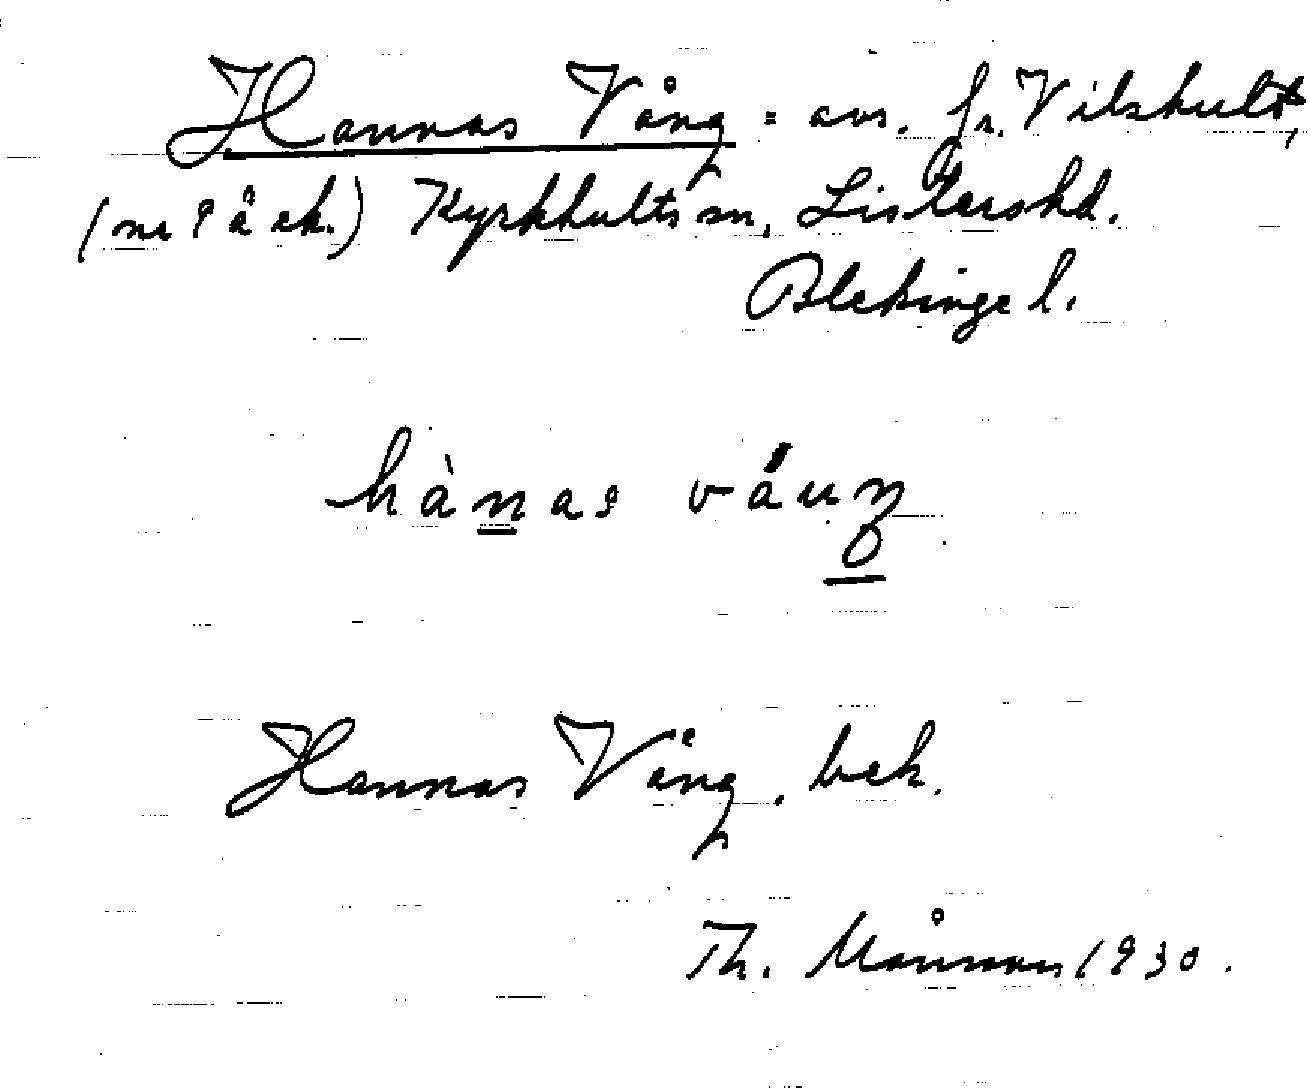 Hannas Vång = avs. fr. Vilshult,
(nr 9 å ek.) Kyrkhults sn, Listers hd.
Blekinge l.
hànas váuŋ
Hannas Vång, bek.
Th. Månsson 1930.